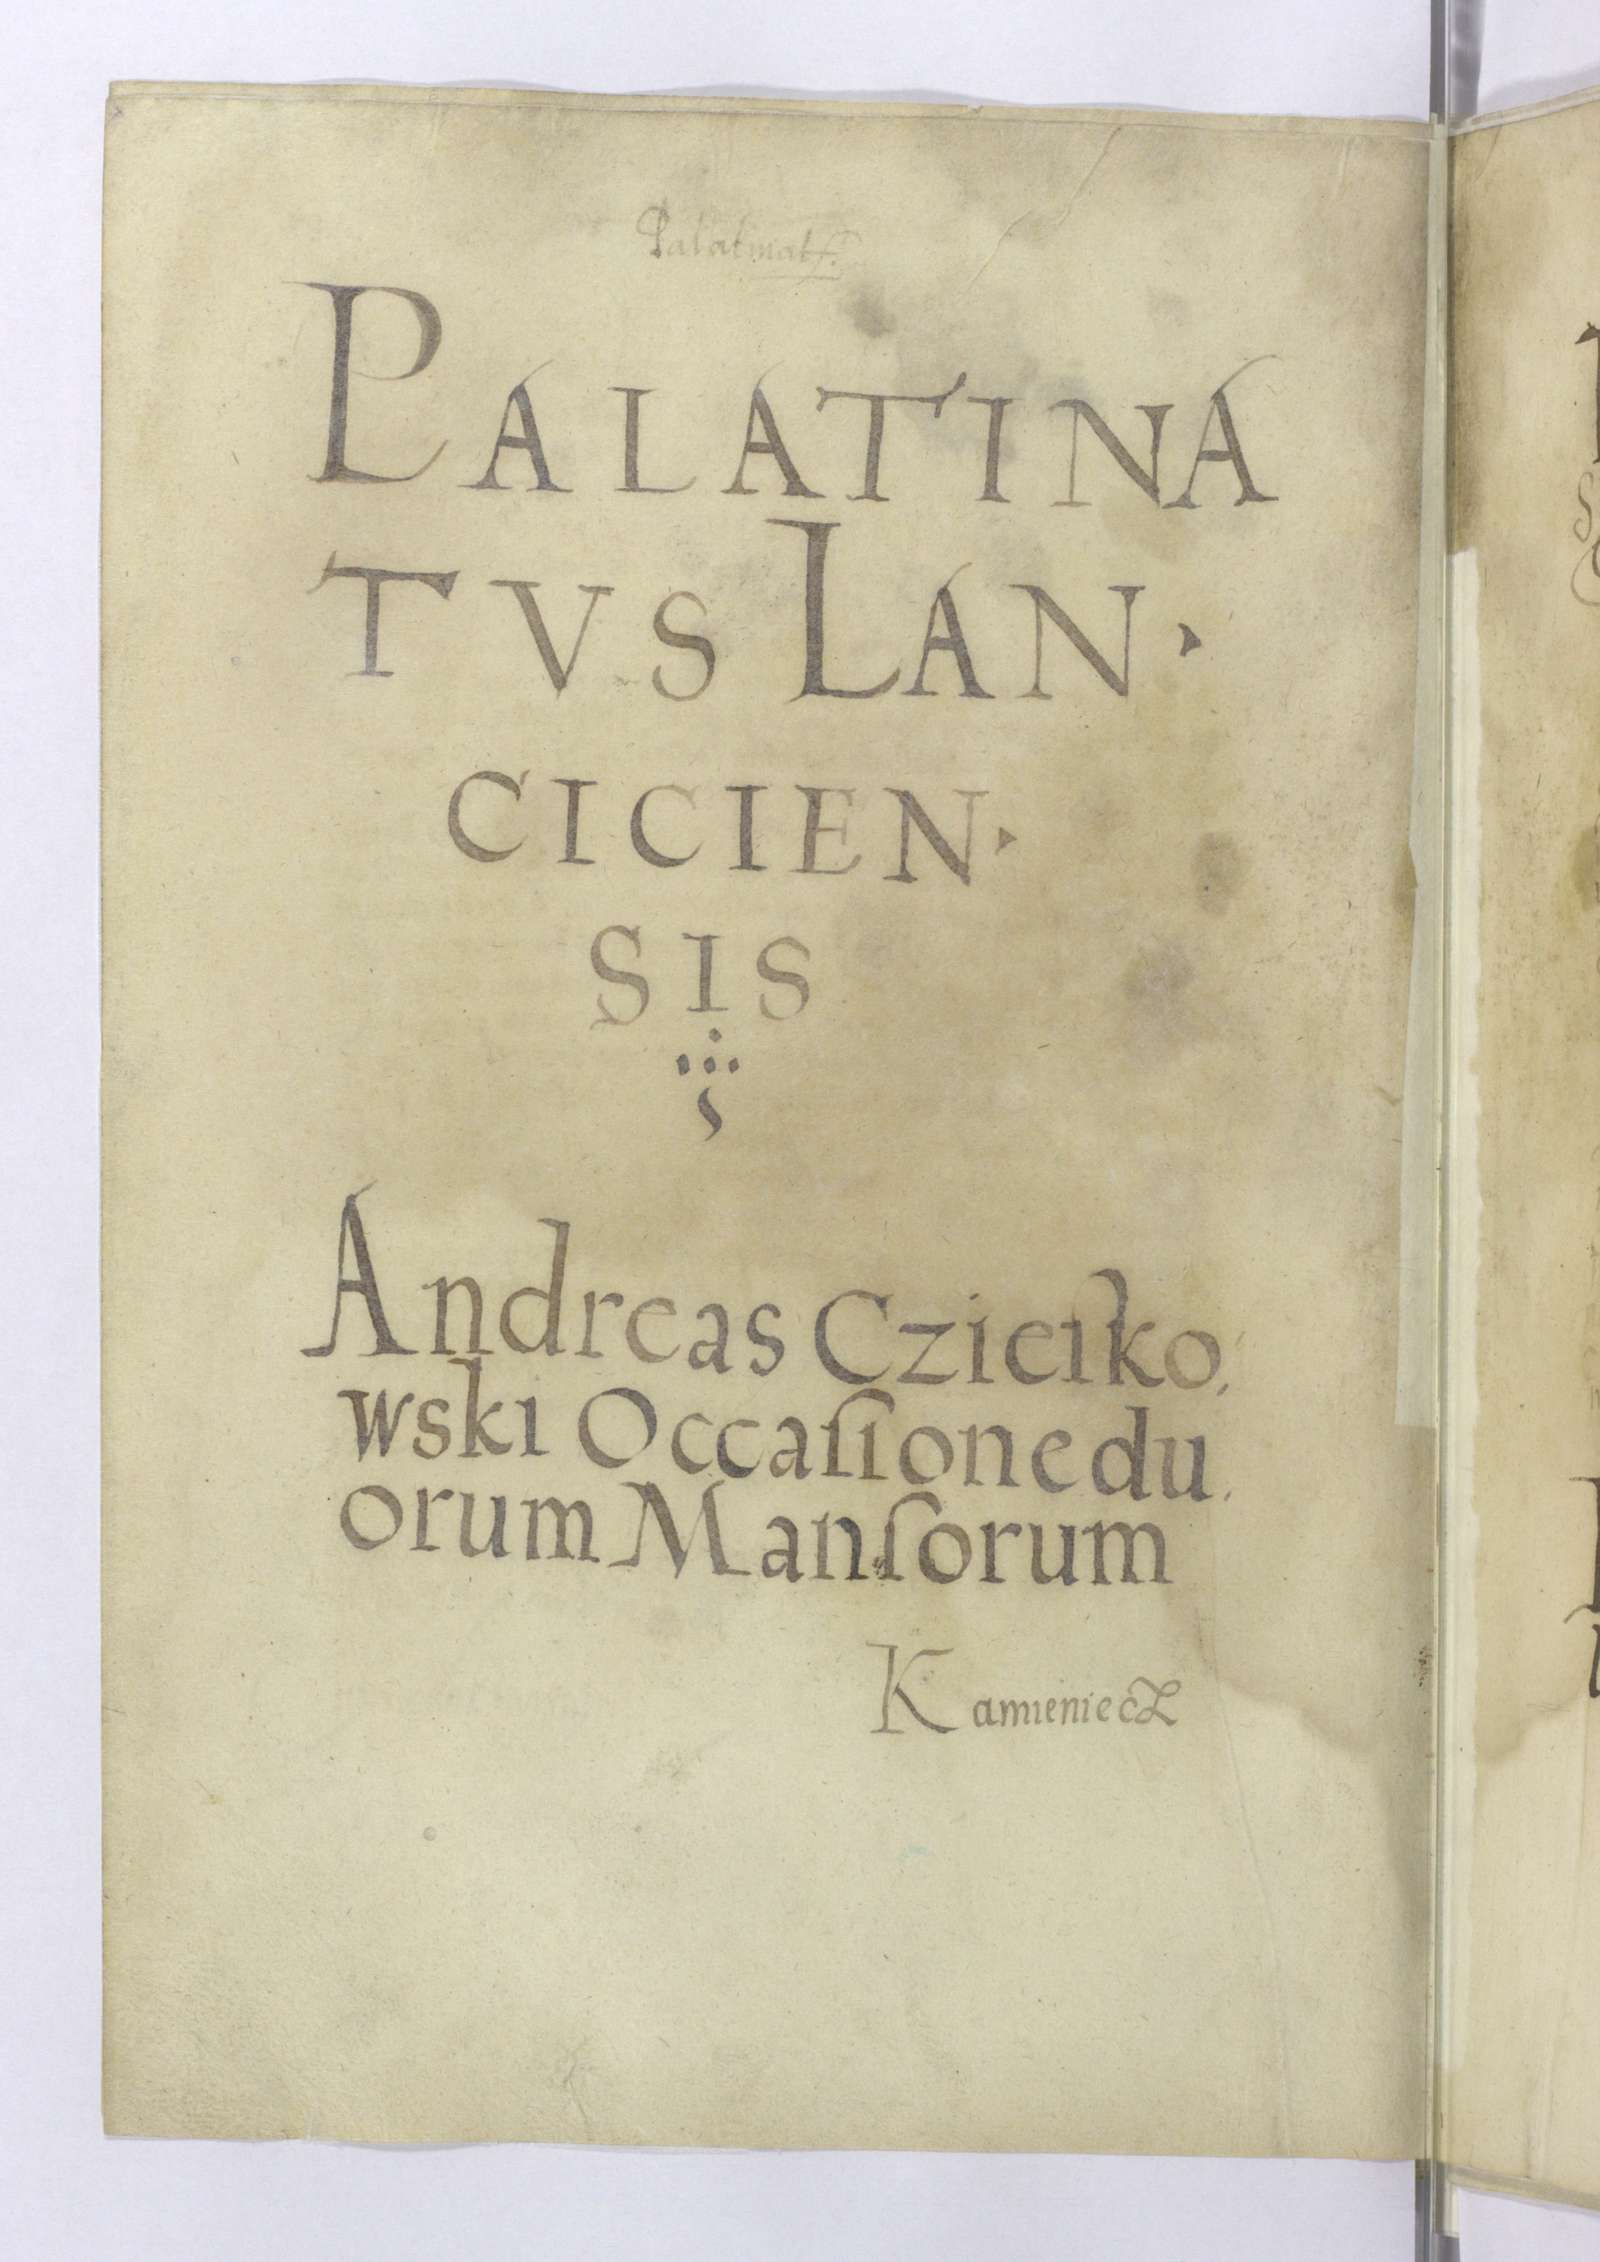 Palatinat9.
PALATINA
TVS LAN·
CICIEN·
SIS
Andreas Czieiko,
wski Occaſione du,
orum Manſorum
Kamieniecz